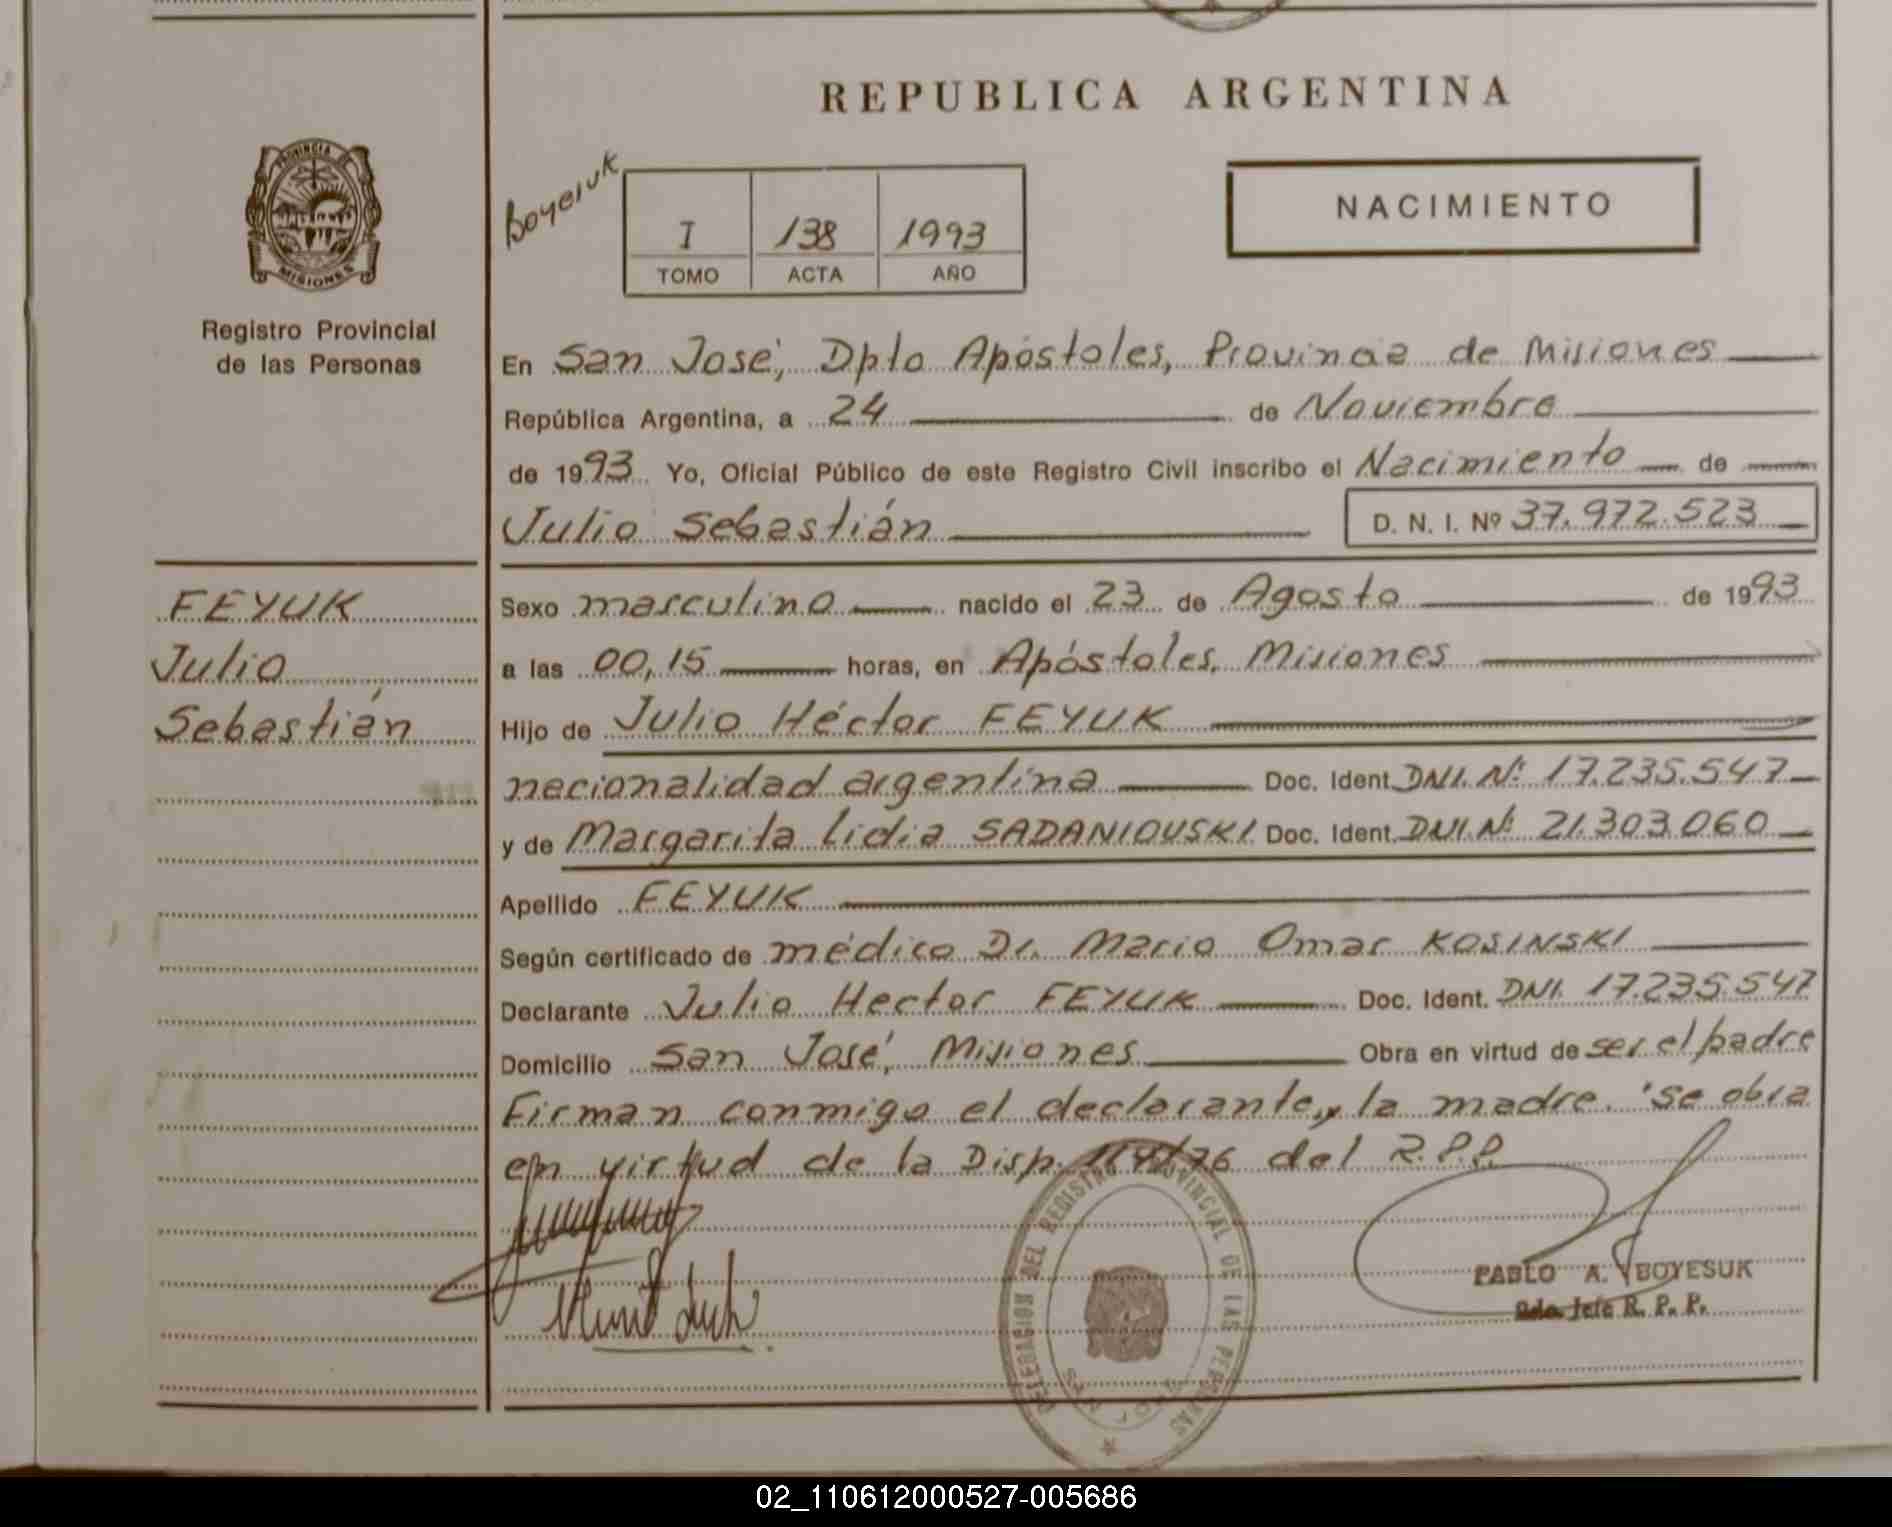 REPUBLICA ARGENTINA
PROVINCIA DE
MISIONES
Registro Provincial
de las Personas
Boyesuk
I 138 1993
TOMO ACTA AÑO
NACIMIENTO
En San José, Dpto Apóstoles, Provincia de Misiones
República Argentina, a 24 de Noviembre
de 1993 Yo, Oficial Público de este Registro Civil inscribo el Nacimiento de
Julio Sebastián D. N. I. Nº 37.972.523
FEYUK
Julio
Sebastián
Sexo masculino nacido el 23 de Agosto de 1993
a las 00,15 horas, en Apóstoles, Misiones
Hijo de Julio Héctor FEYUK
nacionalidad argentina Doc. Ident. DNI. Nº 17.235.547
y de Margarita Lidia SADANIOUSKI Doc. Ident. DNI. Nº 21.303.060
Apellido FEYUK
Según certificado de médico Dr. Mario Omar KOSINSKI
Declarante Julio Hector FEYUK Doc. Ident. DNI. 17.235.547
Domicilio San José, Misiones Obra en virtud de ser el padre
Firman conmigo el declarante y la madre. Se obra
en virtud de la Disp. /76 del R.P.P.
DELEGACION DEL REGISTRO PROVINCIAL DE LAS PERSONAS
PABLO A. BOYESUK
Jefe R. P. P.
02_110612000527-005686